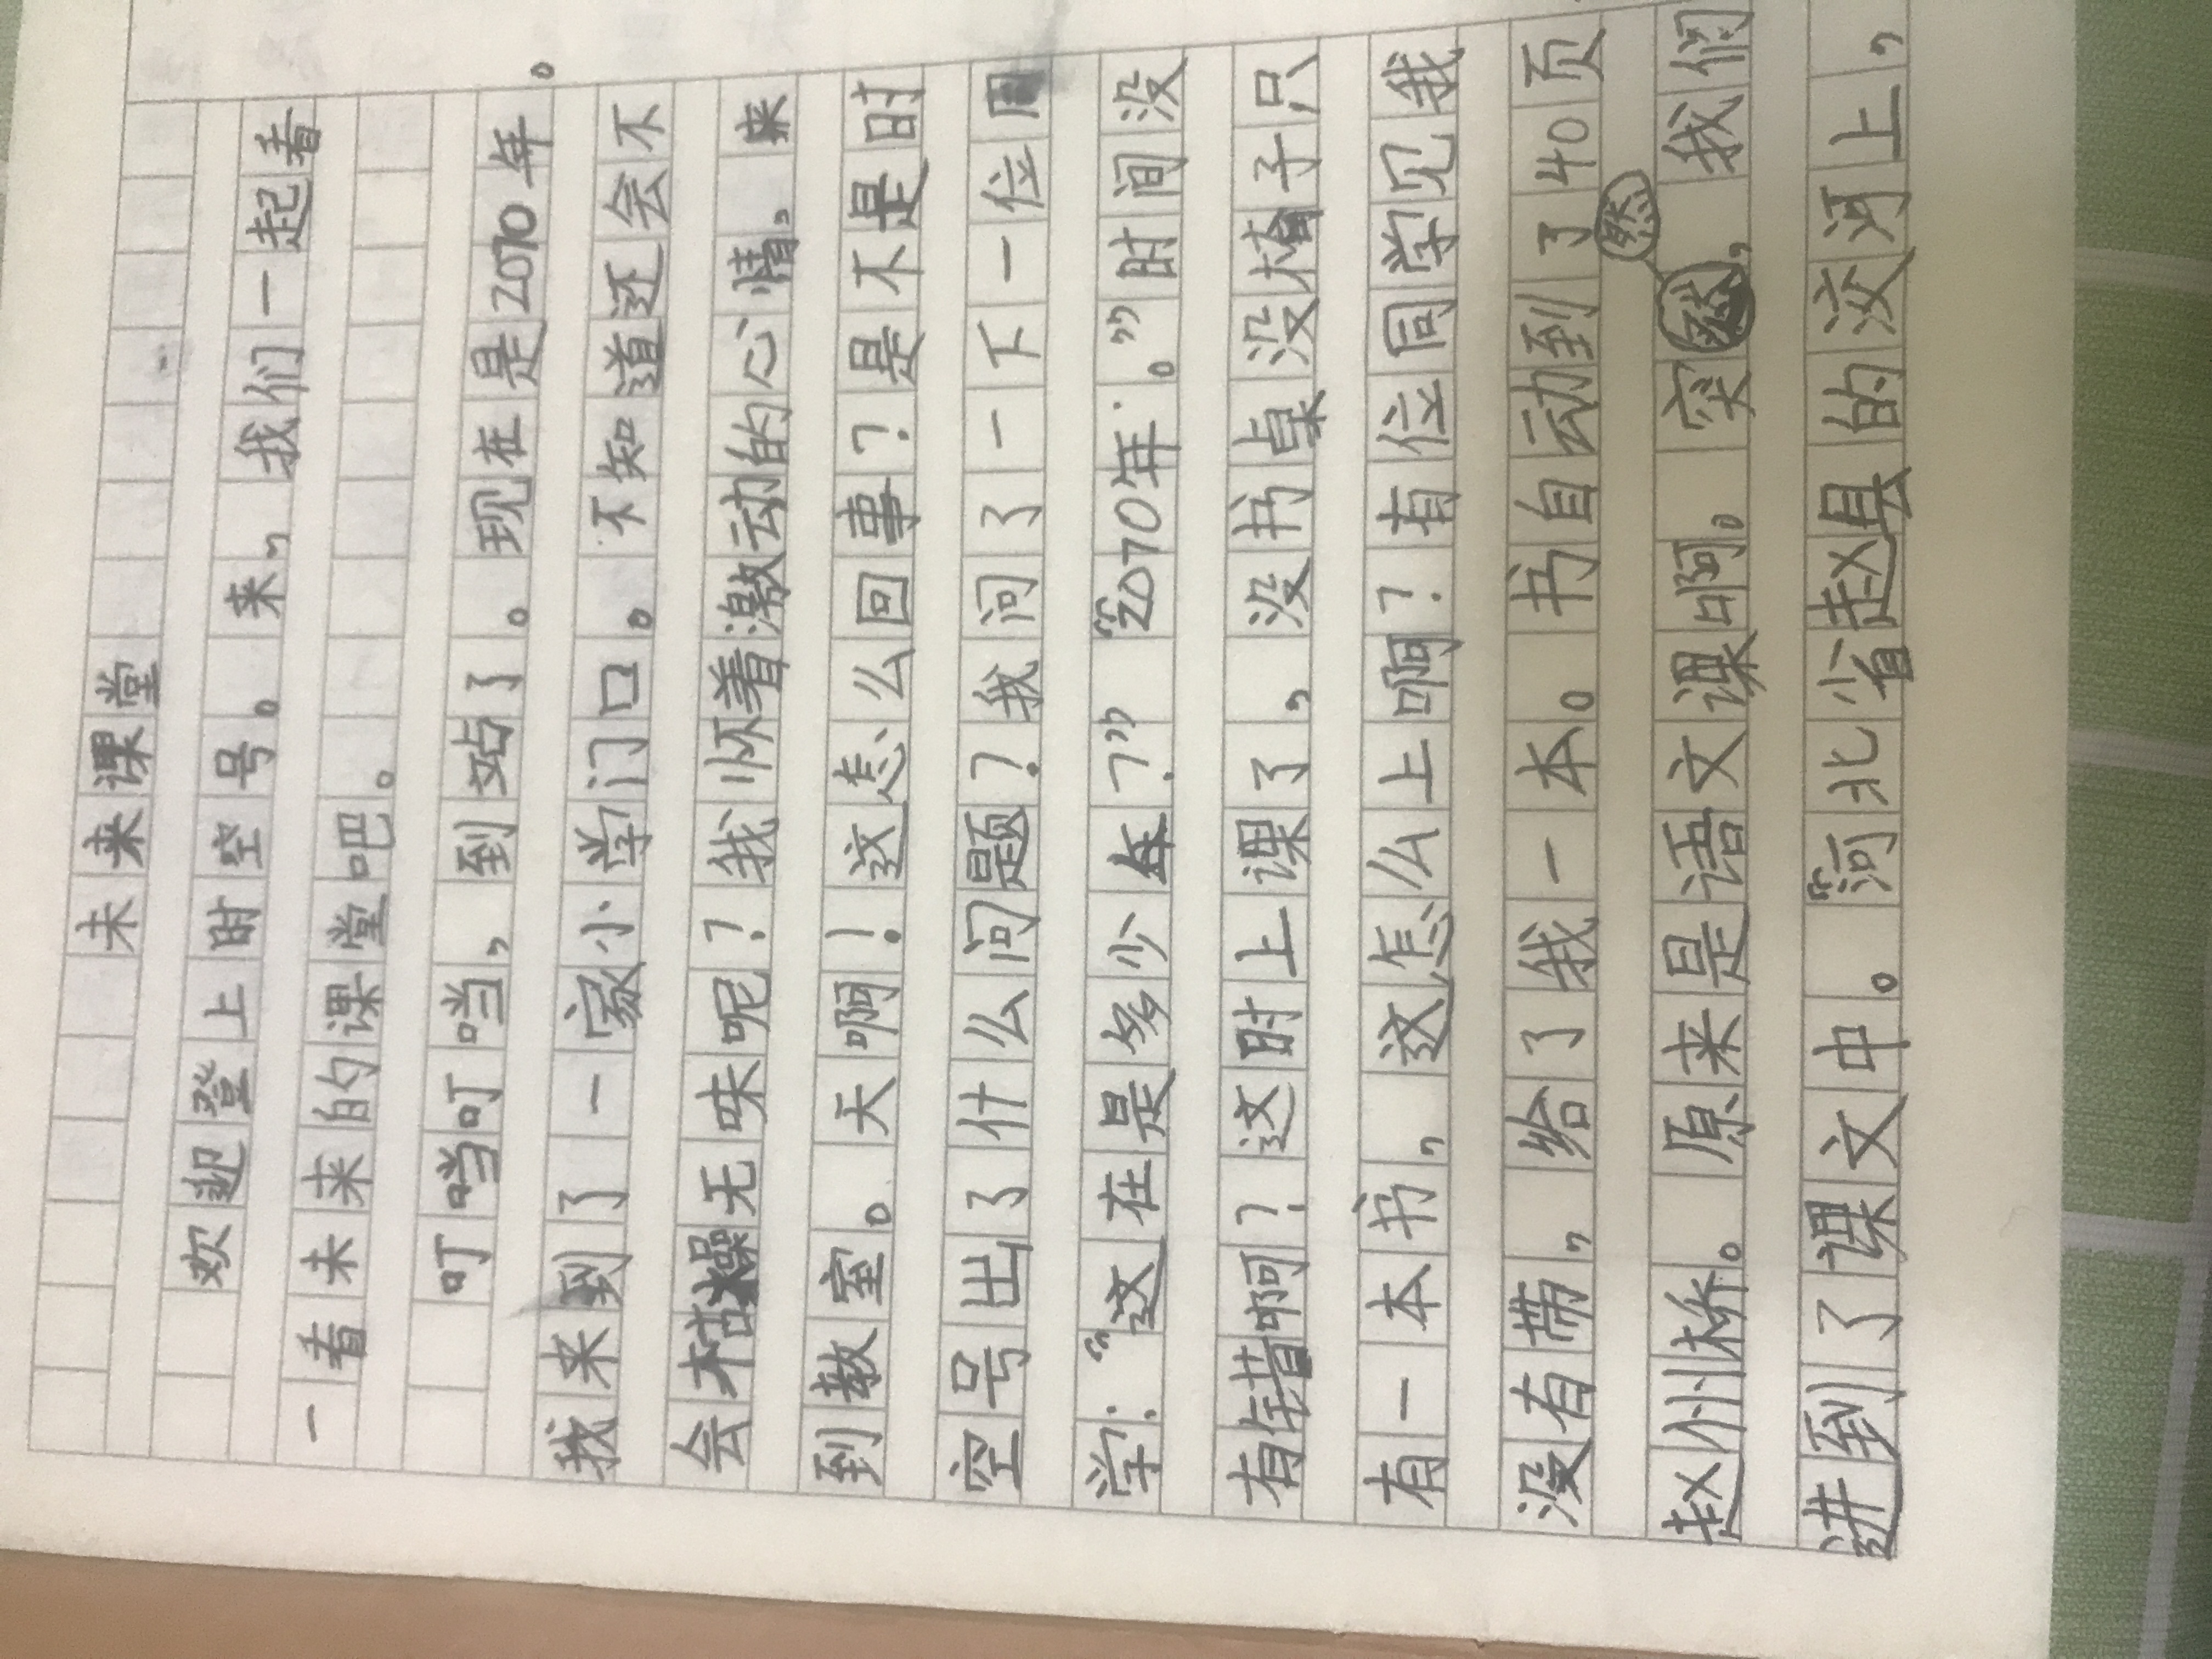 未来课堂
欢迎登上时空号。来，我们一起看
一看未来的课堂吧。
叮当叮当，到站了。现在是2070年。
我来到了一家小学门口。不知道还会不
会枯燥无味呢？我怀着激动的心情，来
到教室。天啊！这怎么回事？是不是时
空号出了什么问题？我问了一下一位同
学：“这在是多少年？”“2070年。”时间没
有错啊？这时上课了，没书桌没椅子只
有一本书，这怎么上啊？有位同学见我
没有带，给了我一本。书自动到了40页
赵州桥。原来是语文课啊。突然，我们
进到了课文中。“河北省赵县的洨河上，